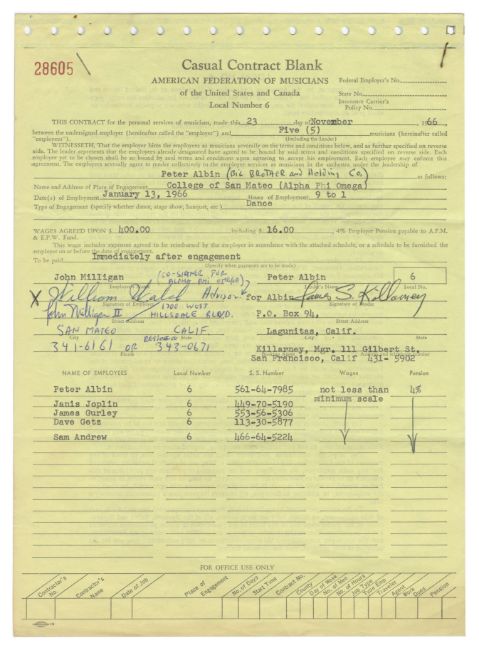 28605
Casual Contract Blank
AMERICAN FEDERATION OF MUSICIANS
of the United States and Canada
Local Number 6
Federal Employer's No.
State No.
Insurance Carrier's
Policy No.
THIS CONTRACT for the personal services of musicians, made this 23 day of November 1966,
between the undersigned employer (hereinafter called the "employer") and Five (5) musicians (hereinafter called
"employees"). (Including the Leader)
WITNESSETH, That the employer hires the employees as musicians severally on the terms and conditions below, and as further specified on reverse
side. The leader represents that the employees already designated have agreed to be bound by said terms and conditions specified on reverse side. Each
employee yet to be chosen shall be so bound by said terms and conditions upon agreeing to accept his employment. Each employee may enforce this
agreement. The employees severally agree to render collectively to the employer services as musicians in the orchestra under the leadership of
Peter Albin (Big Brother and Holding Co.) as follows:
Name and Address of Place of Engagement College of San Mateo (Alpha Phi Omega)
Date(s) of Employment January 13, 1966 Hours of Employment 9 to 1
Type of Engagement (specify whether dance, stage show, banquet, etc.) Dance
WAGES AGREED UPON $ 400.00 Including $ 16.00, 4% Employer Pension payable to A.F.M.
& E.P.W. Fund.
This wage includes expenses agreed to be reimbursed by the employer in accordance with the attached schedule, or a schedule to be furnished the
employer on or before the date of engagement.
To be paid Immediately after engagement
(Specify when payments are to be made)
John Milligan (co-signer for Alpha Phi Omega) Peter Albin 6
Employer's Name Leader's Name Local No.
X William Walsh Advisor for Albin James S. Killarney
Signature of Employer Signature of Leader
John Milligan II 1700 West Hillsdale Blvd. P.O. Box 94,
Street Address Street Address
San Mateo Calif. Lagunitas, Calif.
City State City State
341-6161 or Residence 343-0671 Killarney, Mgr. 111 Gilbert St.
Phone San Francisco, Calif 431- 5902
NAME OF EMPLOYEES Local Number S. S. Number Wages Pension
Peter Albin 6 561-64-7985 not less than 4%
minimum scale
Janis Joplin 6 449-70-5190
James Gurley 6 553-56-5306
Dave Getz 6 113-30-5877
Sam Andrew 6 466-64-5224
FOR OFFICE USE ONLY
Contractor's No. Contractor's Name Date of Job Place of Engagement No. of Days Start Time Contract No. County Day of Week No. of Men No. of Hours Job Type Type Emp. Traveler Agent Work Dues Pension